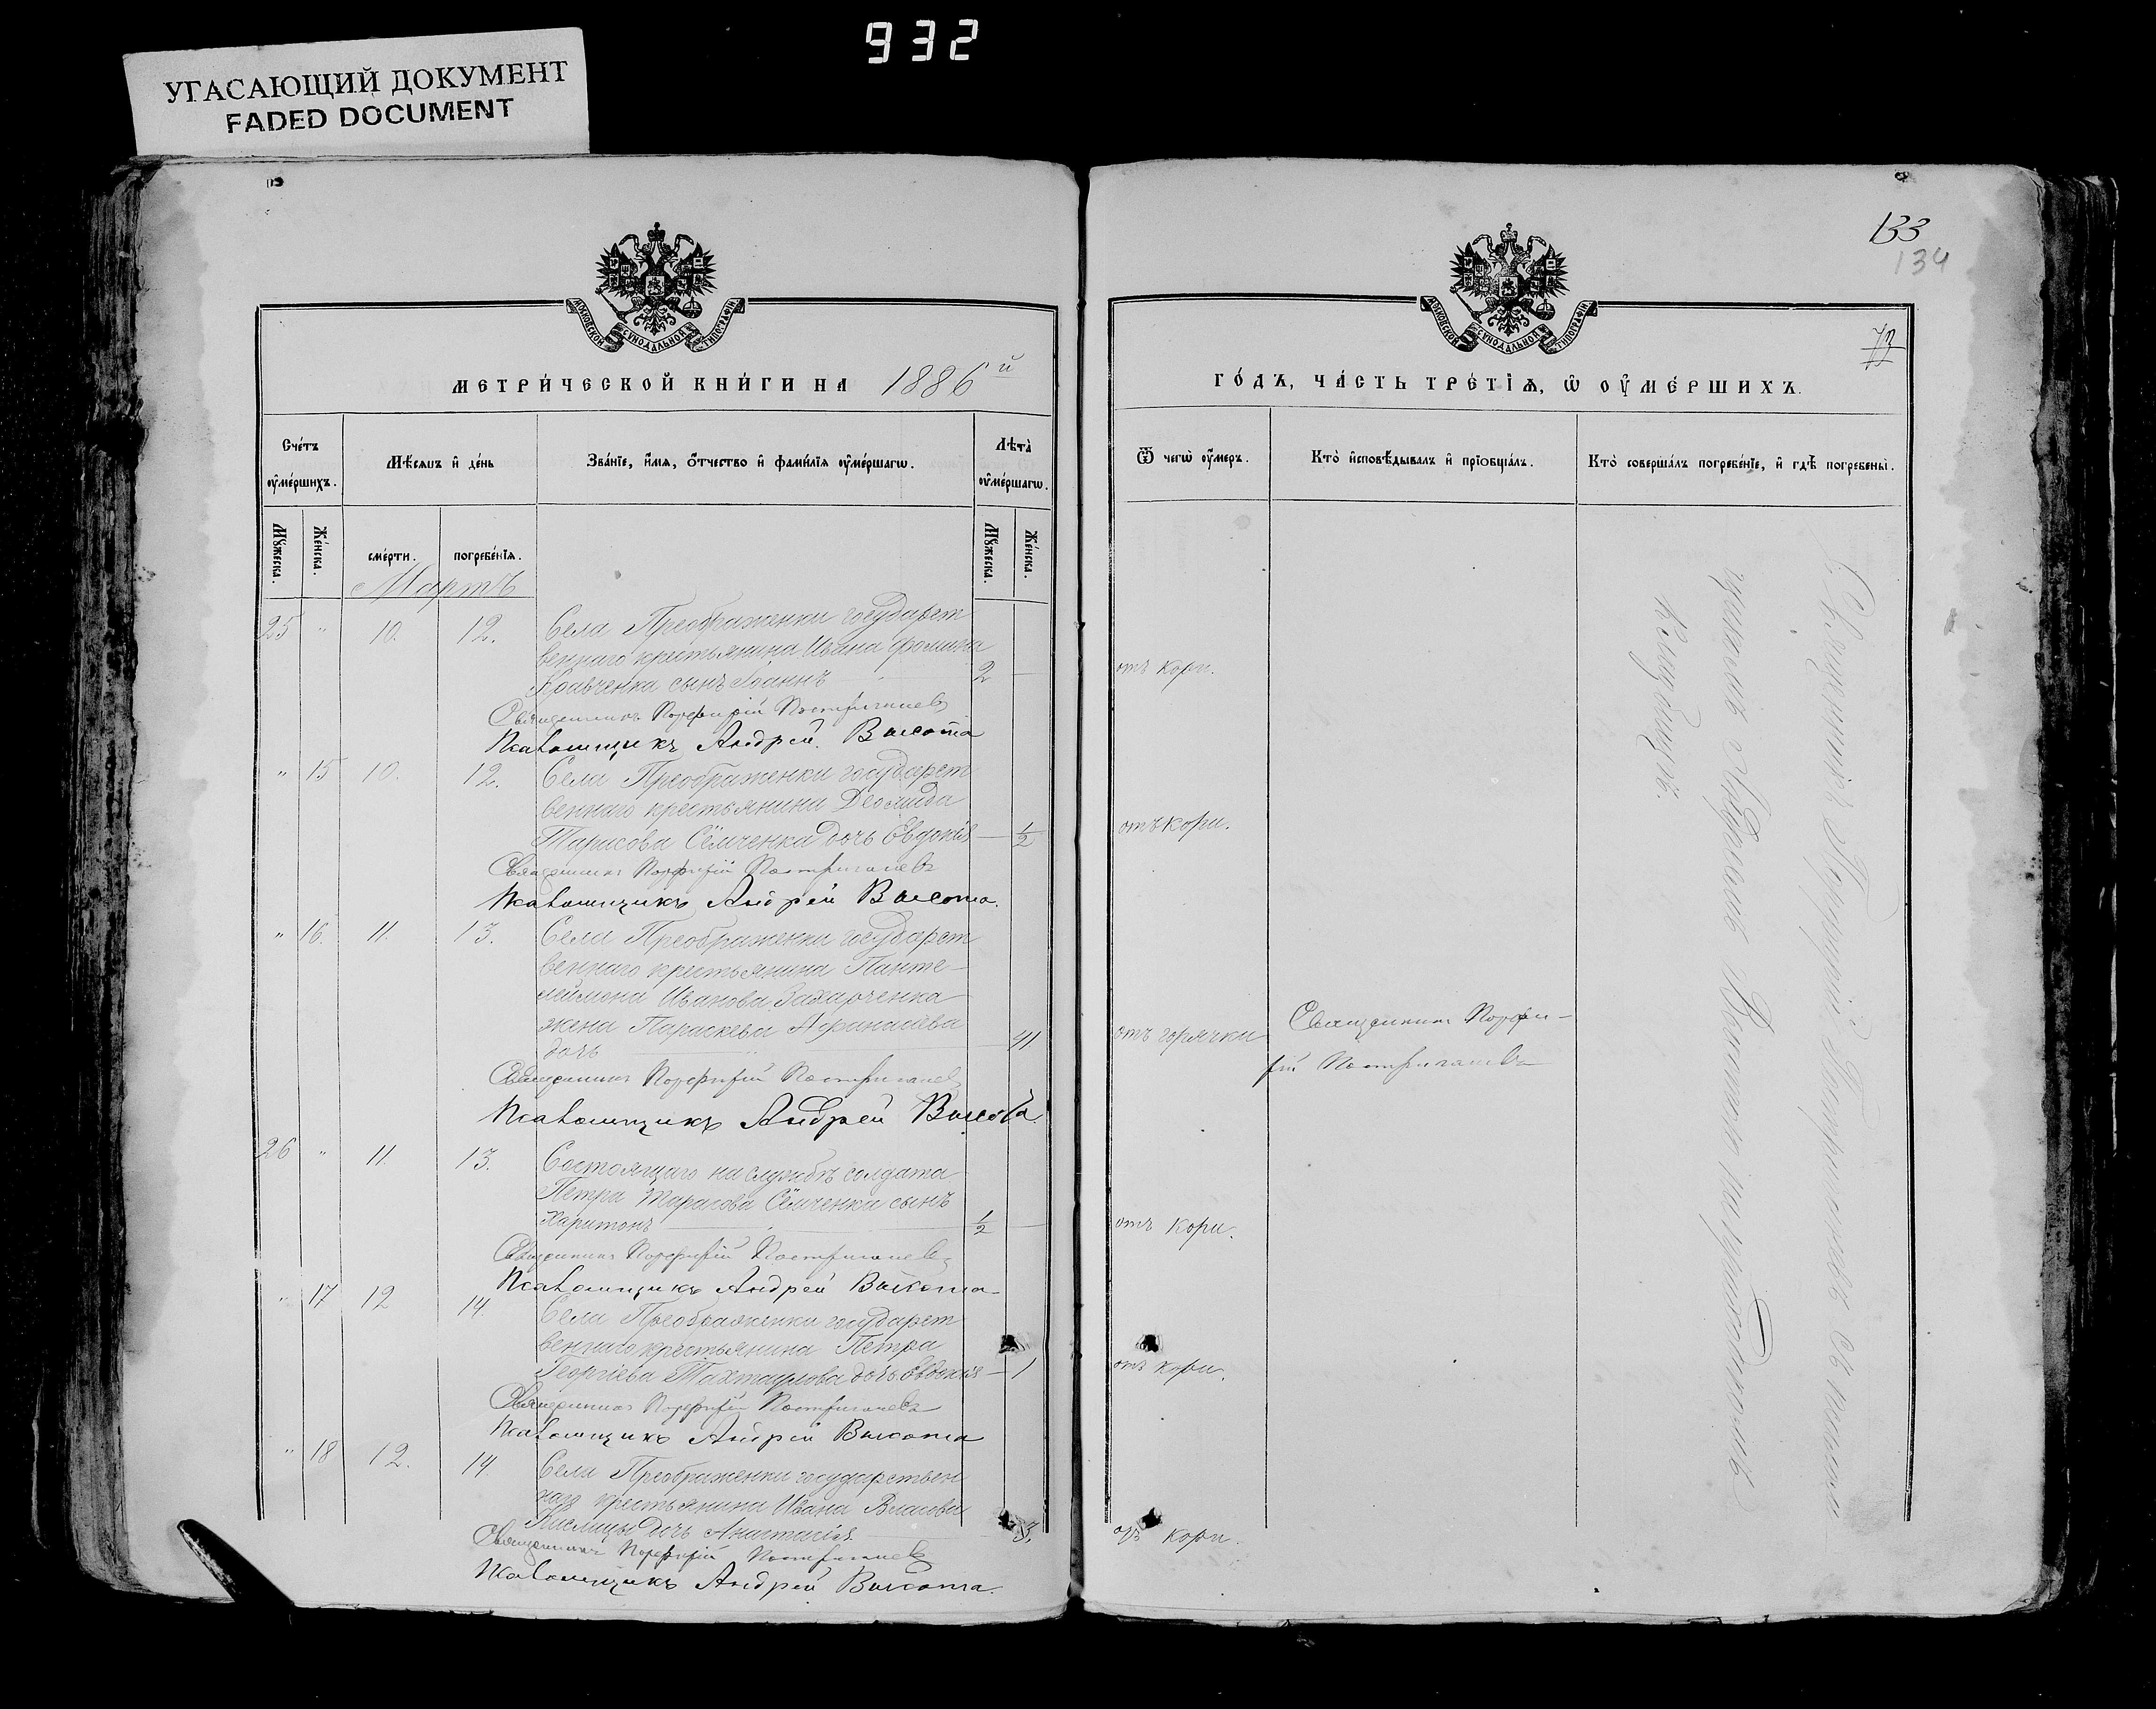 932
УГАСАЮЩИЙ ДОКУМЕНТ
FADED DOCUMENT
МОСКОВСКОЙ СѴНОДАЛЬНОЙ ТИПОГРАФІИ
МЕТРИ́ЧЕСКОЙ КНИ́ГИ НА 1886й
Сче́тъ ᲂумершихъ.
Мѣ́сяцъ и де́нь
Зва́нїе, и́мя, ѻ́тчество и фами́лїя ᲂуме́ршагѡ.
Лѣта̀ ᲂуме́ршагѡ.
Мꙋ́жеска.
Же́нска.
сме́рти.
погребе́нїя.
Мꙋ́жеска.
Же́нска.
Мартъ
25 " 10. 12. Села Преображенки государст
веннаго крестьянина Ивана Фомина
Кравченка сынъ Іоаннъ — 2 —
Священникъ Порфирій Постригачевъ
Псаломщикъ Андрей Высота
" 15 10. 12. Села Преображенки государст
веннаго крестьянина Деомида
Тарасова Сёмченка дочь Евдокія — 1/2
Священникъ Порфирій Постригачевъ
Псаломщикъ Андрей Высота.
" 16. 11. 13. Села Преображенки государст
веннаго крестьянина Панте-
леймона Иванова Захарченка
жена Параскева Афанасіева
дочь — 41
Священникъ Порфирій Постригачевъ
Псаломщикъ Андрей Высота.
26 " 11. 13. Состоящаго на службѣ солдата
Петра Тарасова Сёмченка сынъ
Харитонъ — 1/2 —
Священникъ Порфирій Постригачевъ
Псаломщикъ Андрей Высота
" 17 12 14. Села Преображенки государст
веннаго крестьянина Петра
Георгіева дочь Евдокія — 1
Священникъ Порфирій Постригачевъ
Псаломщикъ Андрей Высота
" 18 12. 14. Села Преображенки государствен
наго крестьянина Ивана Власова
Кислицы дочь Анастасія 3.
Священникъ Порфирій Постригачевъ
Псаломщикъ Андрей Высота.
133
134
МОСКОВСКОЙ СѴНОДАЛЬНОЙ ТИПОГРАФІИ
ГО́ДЪ, ЧА́СТЬ ТРЕ́ТЇѦ, Ѡ ОУМЕ́РШИХЪ.
Ѿ чегѡ̀ ᲂу́меръ.
Кто̀ исповѣ́дывалъ и прїобща́лъ.
Кто̀ соверша́лъ погребе́нїе, и гдѣ̀ погребены̀.
отъ кори.
отъ кори.
отъ горячки Священникъ Порфи-
рій Постригачевъ
отъ кори.
отъ кори.
отъ кори.
Священникъ Порфирій Постригачевъ съ псалом
щикомъ Андреемъ Высотою на приходскомъ
кладбищѣ.